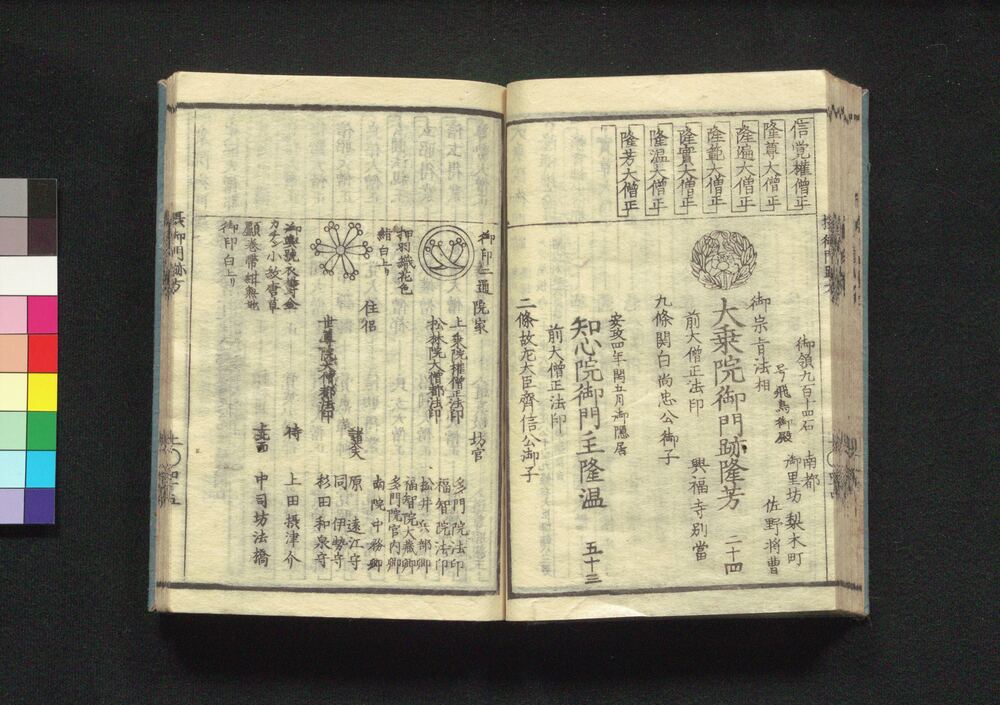 信覚権僧正
隆尊大僧正
隆遍大僧正
隆範大僧正
隆實大僧正
隆温大僧正
隆芳大僧正
御領九百十四石 南都
号飛鳥御殿 御里坊 梨木町
佐野将曹
御宗旨法相
大乗院御門跡隆芳 二十四
前大僧正法印 興福寺別當
九條関白尚忠公御子
安政四年閏五月御隠居
知心院御門主隆温 五十三
前大僧正法印
二條故左大臣齊信公御子
御印二通
院家
上乗院権僧正法印
松林院大僧都法印
押羽織花色
緒白上リ
住侶
世尊院大僧都法印
小故唐草
顕巻帯紺無地
御印白上リ
坊官
多門院法印
福智院法印
松井兵部卿
福智院大蔵卿
多門院宮内卿
南院中務卿
諸大夫
原 遠江守
同 伊勢守
杉田和泉守
侍
上田摂津介
中司坊法橋